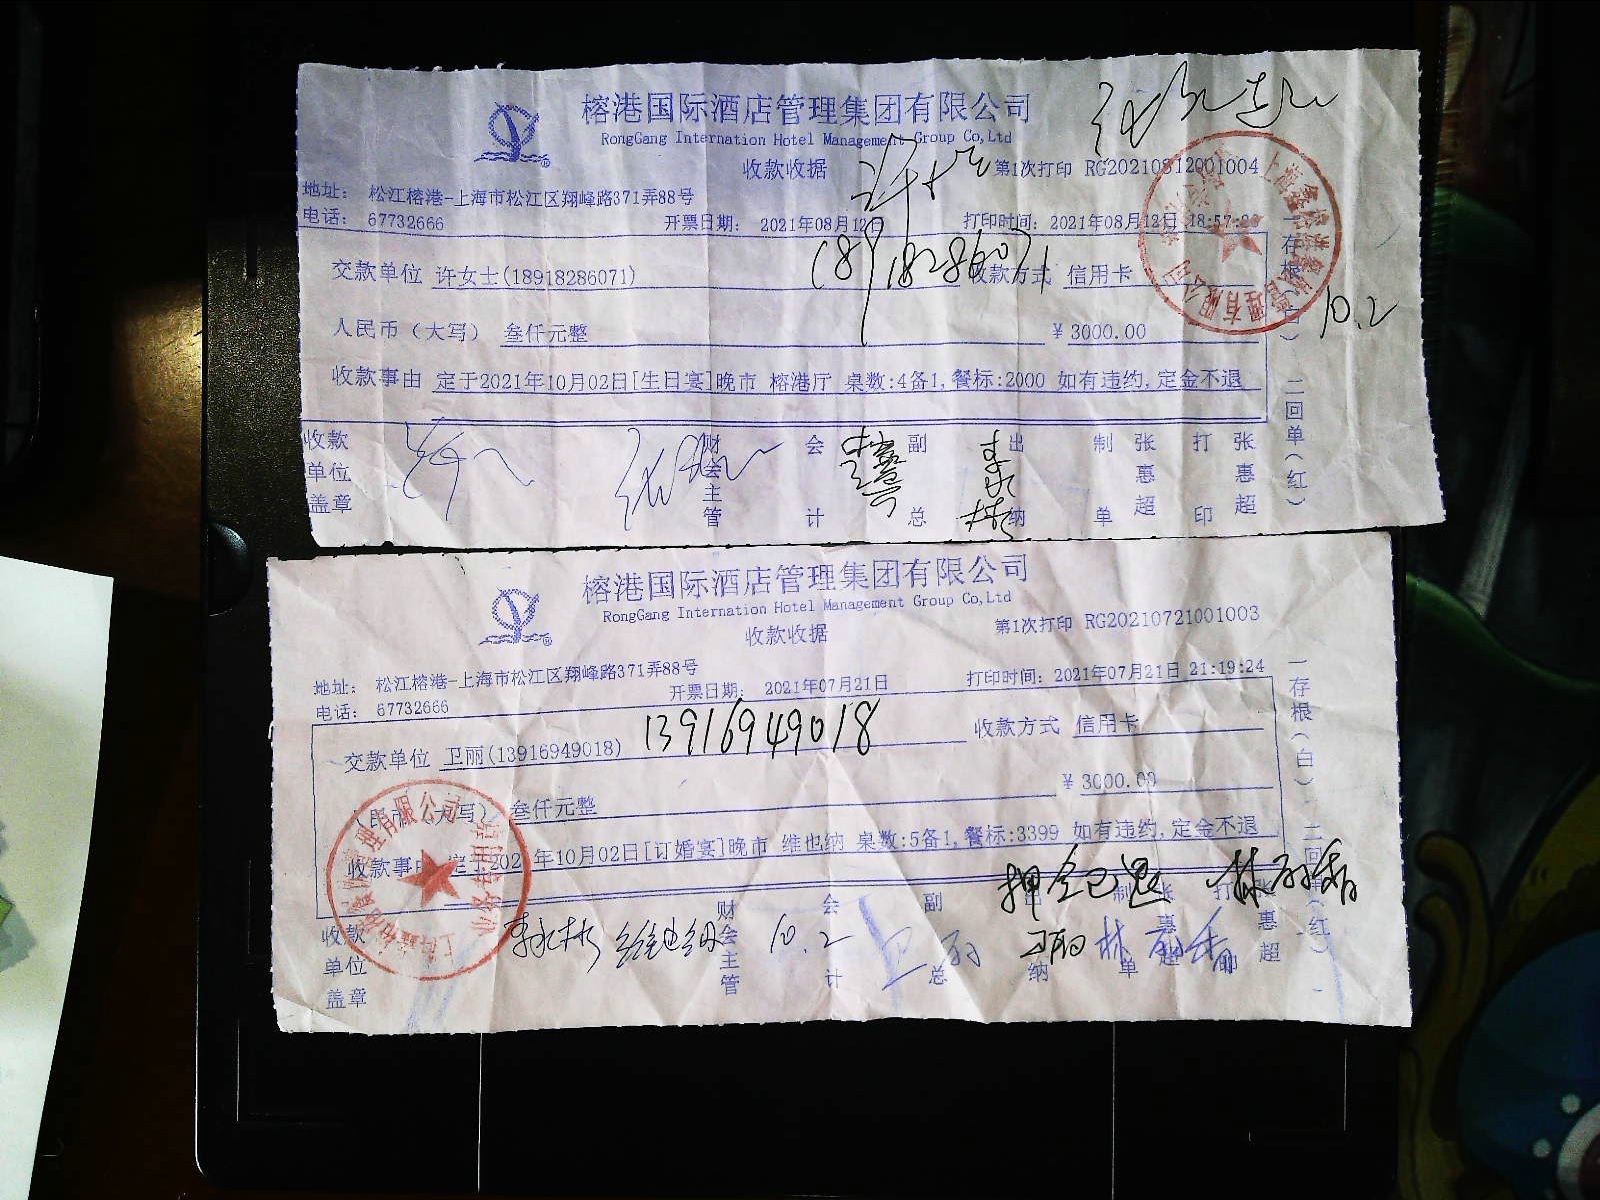 榕港国际酒店管理集团有限公司
RongGang Internation Hotel Management Group Co,Ltd
收款收据
第1次打印 RG20210812001004
地址: 松江榕港-上海市松江区翔峰路371弄88号
电话: 67732666
开票日期: 2021年08月12日
打印时间: 2021年08月12日 18:57:
交款单位 许女士(18918286071)
18918286071
收款方式 信用卡
人民币(大写) 叁仟元整
¥ 3000.00
10.2
收款事由 定于2021年10月02日[生日宴]晚市 榕港厅 桌数:4备1,餐标:2000 如有违约,定金不退
收款单位盖章
财会主管
会计
副总
出纳
制单 张惠超
打印 张惠超
一存根(白) 二回单(红)
榕港国际酒店管理集团有限公司
RongGang Internation Hotel Management Group Co,Ltd
收款收据
第1次打印 RG20210721001003
地址: 松江榕港-上海市松江区翔峰路371弄88号
电话: 67732666
开票日期: 2021年07月21日
打印时间: 2021年07月21日 21:19:24
交款单位 卫丽(13916949018)
13916949018
收款方式 信用卡
人民币(大写) 叁仟元整
¥ 3000.00
收款事由 定于2021年10月02日[订婚宴]晚市 维也纳 桌数:5备1,餐标:3399 如有违约,定金不退
押金已退
收款单位盖章
维也纳
财会主管
10.2
会计
卫丽
副总
出纳
制单 张惠超
打印 张惠超
一存根(白) 二回单(红)